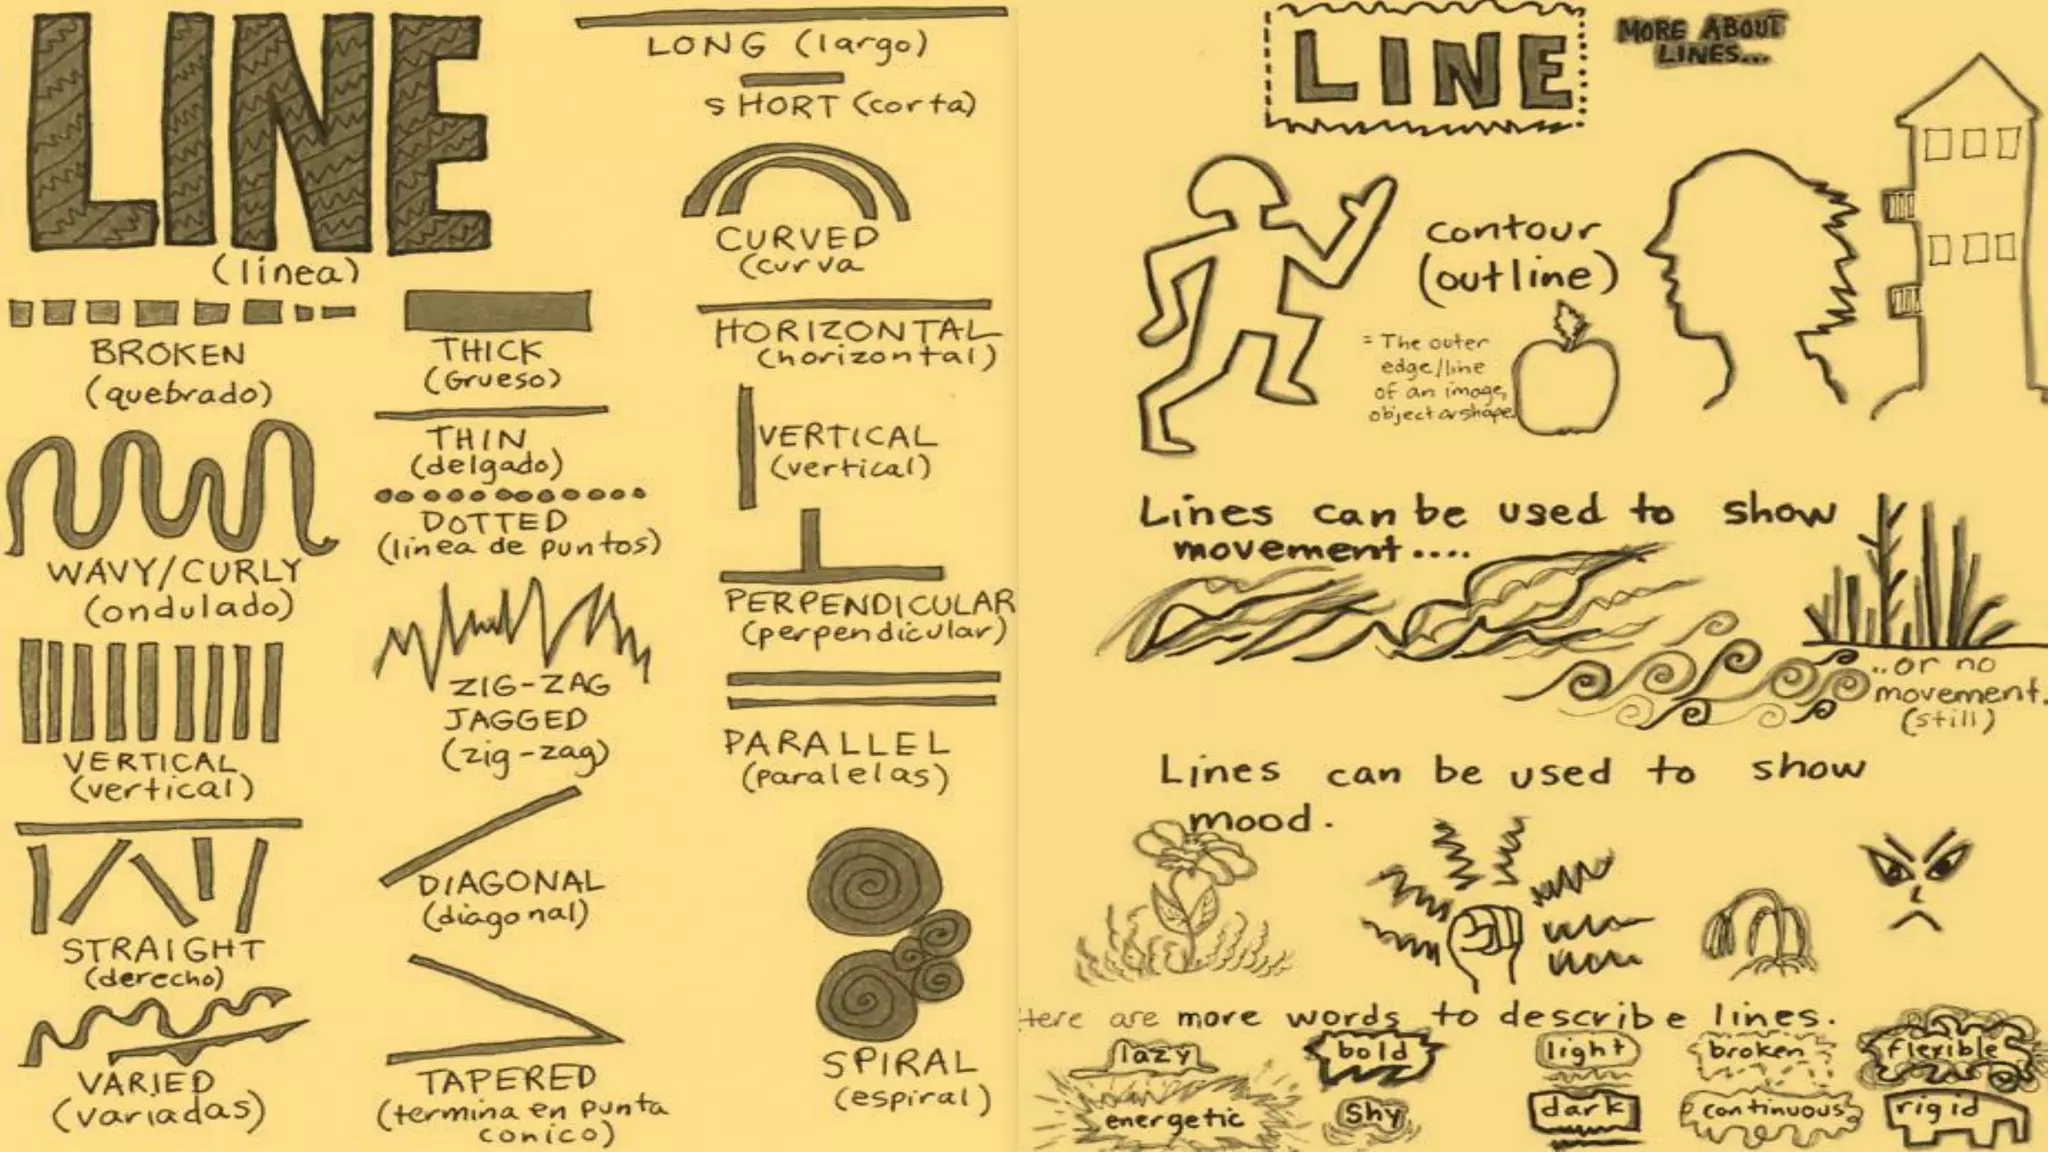 LINE
(línea)
BROKEN
(quebrado)
WAVY/CURLY
(ondulado)
VERTICAL
(vertical)
STRAIGHT
(derecho)
VARIED
(variadas)
THICK
(Grueso)
THIN
(delgado)
DOTTED
(línea de puntos)
ZIG-ZAG
JAGGED
(zig-zag)
DIAGONAL
(diagonal)
TAPERED
(termina en punta
conico)
LONG (largo)
SHORT (corta)
CURVED
(curva
HORIZONTAL
(horizontal)
VERTICAL
(vertical)
PERPENDICULAR
(perpendicular)
PARALLEL
(paralelas)
SPIRAL
(espiral)
LINE
MORE ABOUT
LINES...
contour
(outline)
= The outer
edge/line
of an image,
object or shape.
Lines can be used to show
movement....
..or no
movement.
(still)
Lines can be used to show
mood.
Here are more words to describe lines.
lazy bold light broken flexible
energetic shy dark continuous rigid